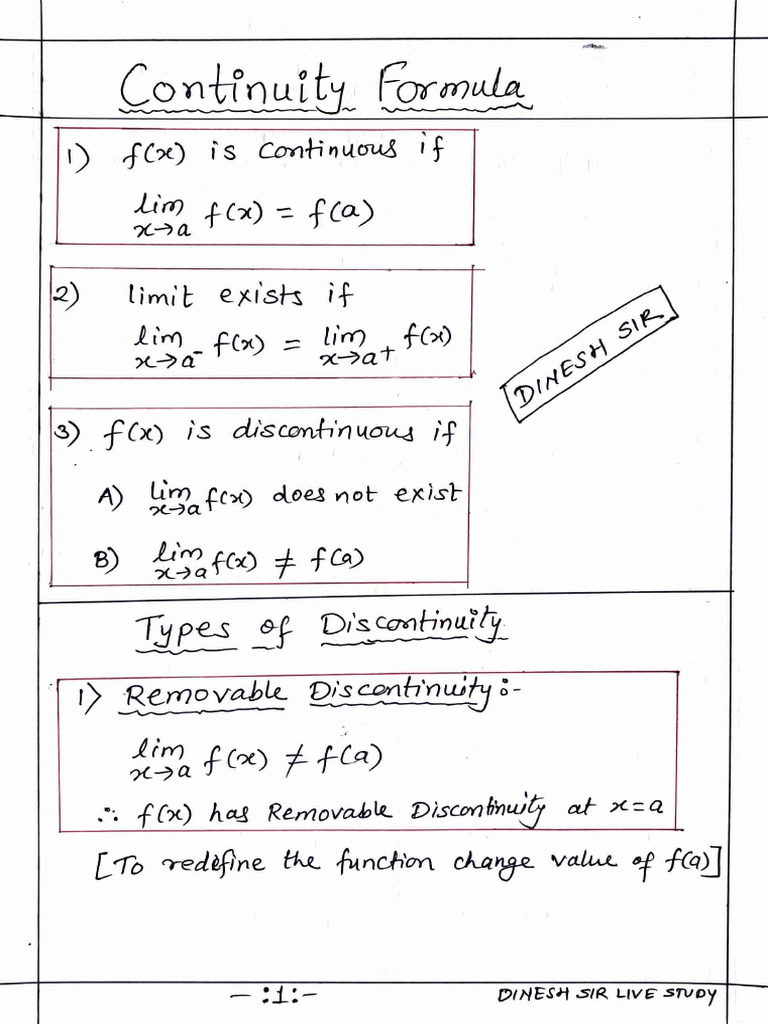 Continuity Formula
1) f(x) is continuous if
lim x→a f(x) = f(a)
2) limit exists if
lim x→a⁻ f(x) = lim x→a+ f(x)
3) f(x) is discontinuous if
A) lim x→a f(x) does not exist
B) lim x→a f(x) ≠ f(a)
DINESH SIR
Types of Discontinuity
1) Removable Discontinuity :-
lim x→a f(x) ≠ f(a)
∴ f(x) has Removable Discontinuity at x=a
[To redefine the function change value of f(a)]
- :1: -
DINESH SIR LIVE STUDY